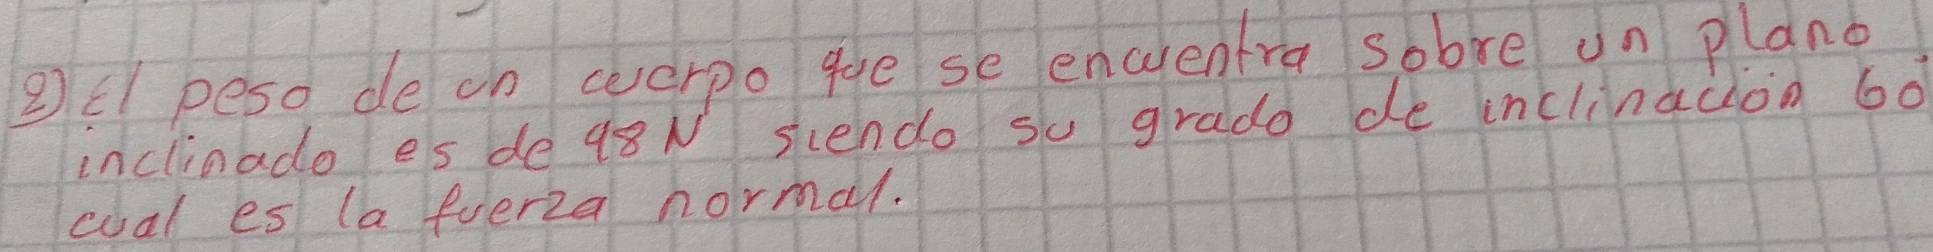 2) El peso de un cuerpo que se encuentra sobre un plano
inclinado es de 98N siendo su grado de inclinación 60°
cual es la fuerza normal.